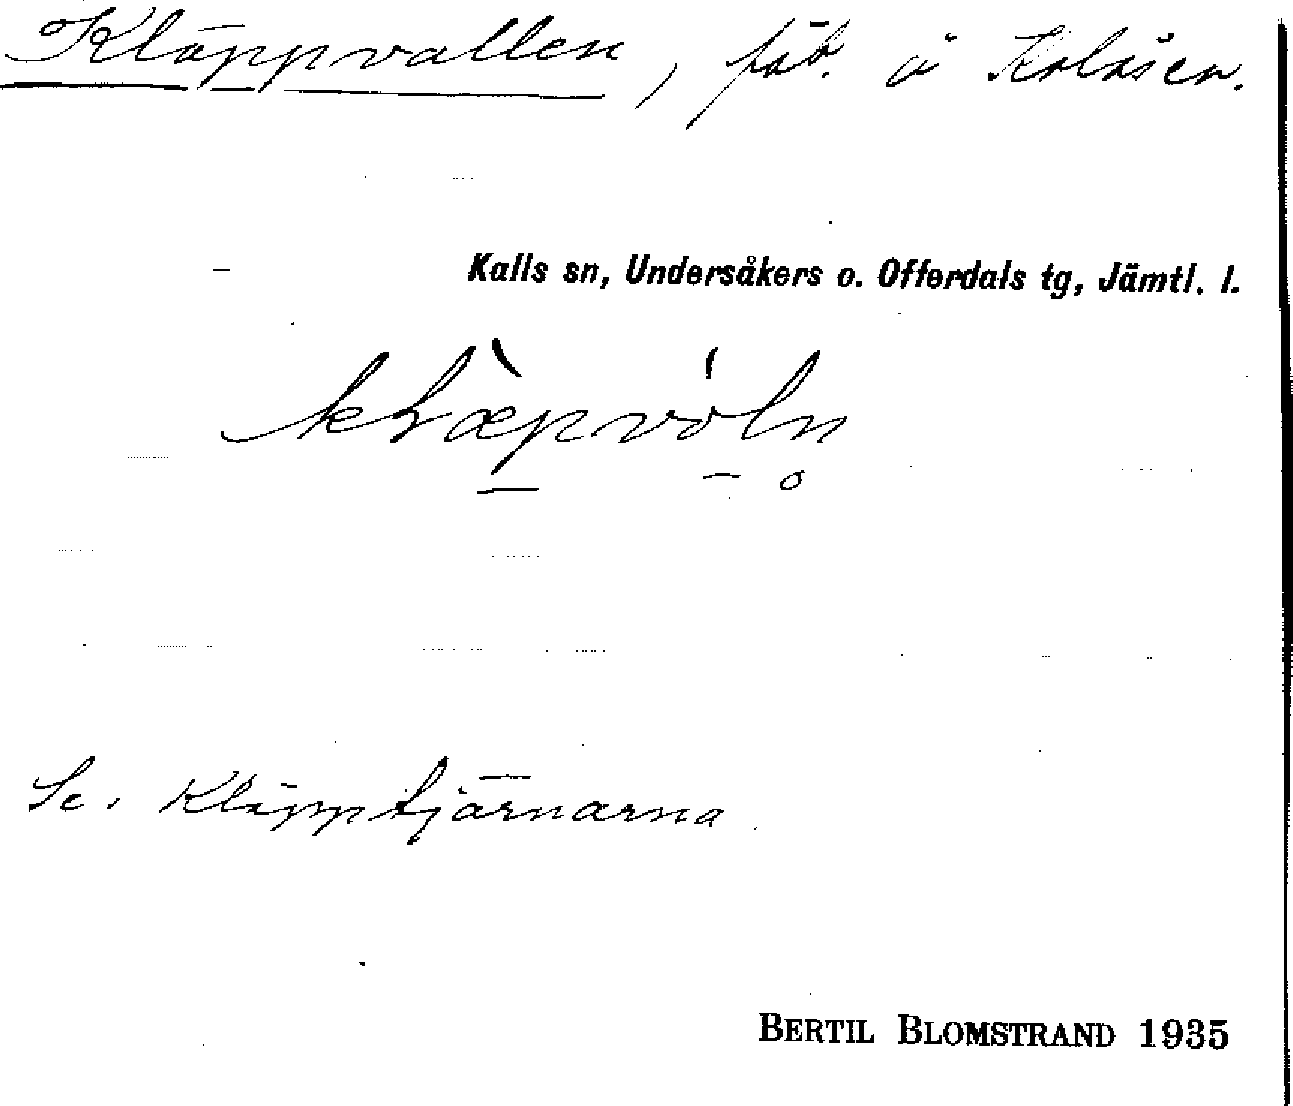 Kläppvallen, fäb. å Kolåsen.
Kalls sn, Undersåkers o. Offerdals tg, Jämtl. l.
Se. Kläpptjärnarna
BERTIL BLOMSTRAND 1935